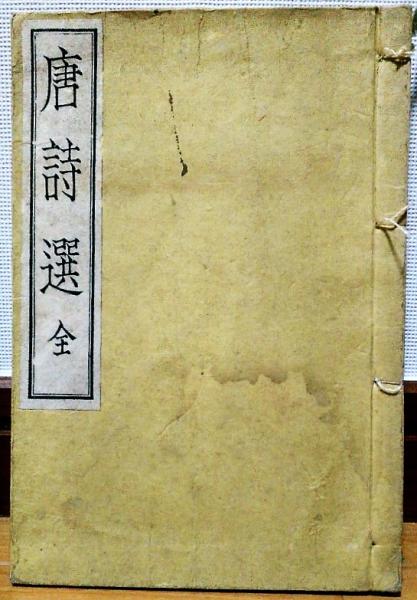 唐詩選全